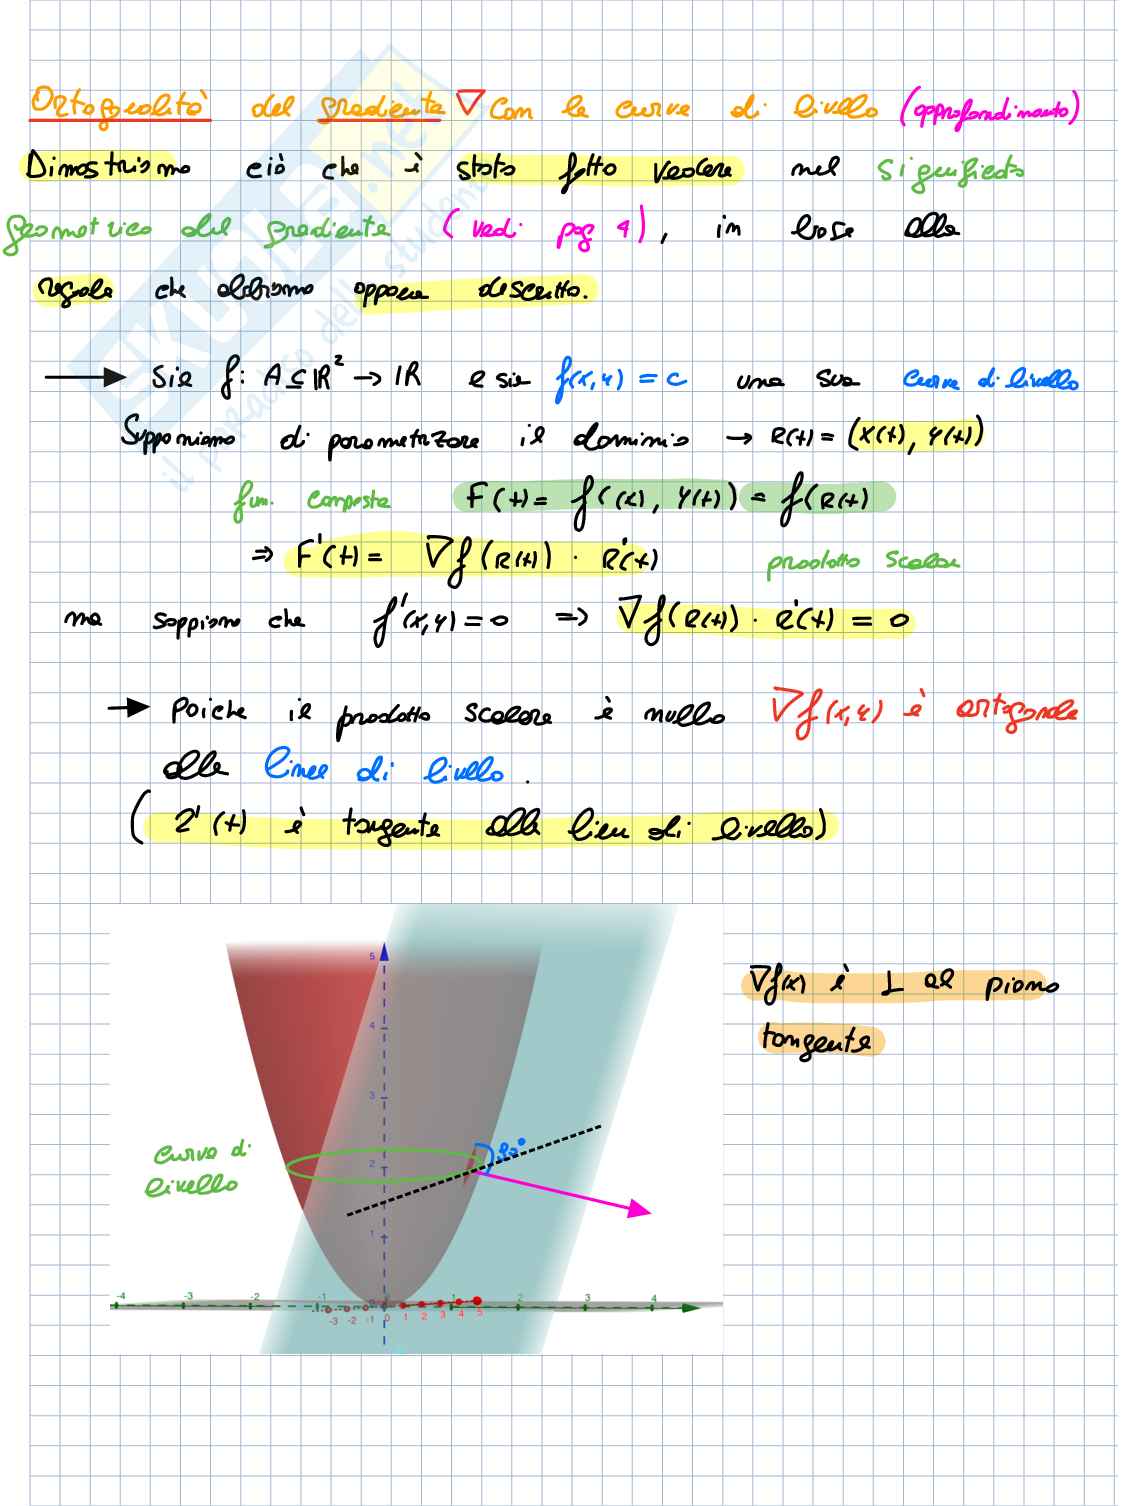 Ortogonalità del gradiente ∇ con le curve di livello (approfondimento)
Dimostriamo ciò che è stato fatto vedere nel significato
geometrico del gradiente (vedi pag 4), in base alla
regola che abbiamo appena descritto.
→ Sia f: A ⊆ ℝ² → ℝ e sia f(x,y) = c una sua curva di livello
Supponiamo di parametrizzare il dominio → R(t) = (x(t), y(t))
fun. composta F(t) = f((x), y(t)) = f(R(t)
⇒ F'(t) = ∇f(R(t)) · R'(t) prodotto scalare
ma sappiamo che f'(x,y) = 0 ⇒ ∇f(R(t)) · R'(t) = 0
→ Poiche il prodotto scalare è nullo ∇f(x,y) è ortogonale
alle linee di livello.
(r'(t) è tangente alle linee di livello)
∇f(x) è ⊥ al piano
tangente
curva di
livello
90°
5
4
3
2
1
0
-4 -3 -2 -1 1 2 3 4
-3 -2 -1 0 1 2 3 4 5
SKUOLA.net
il paradiso dello studente